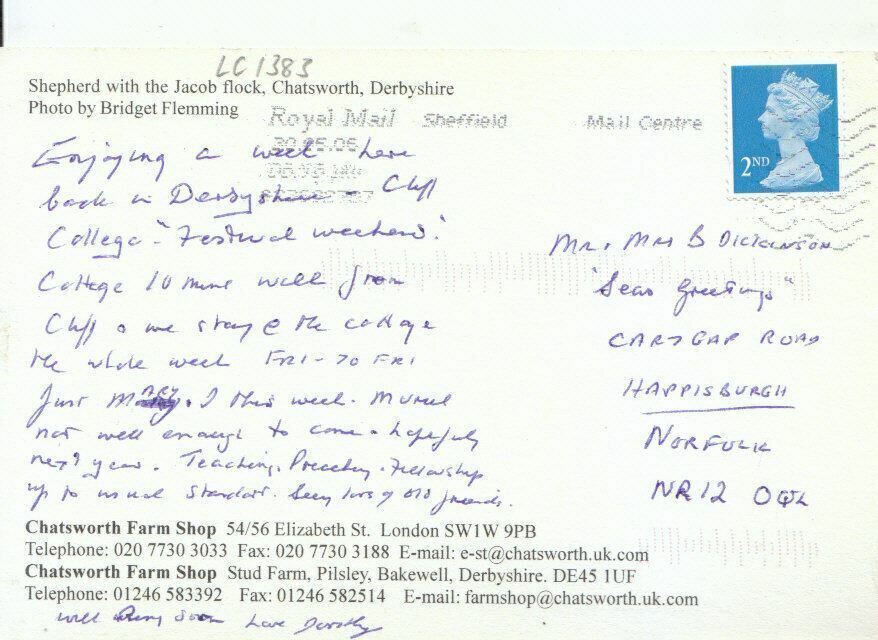 LC1383
Shepherd with the Jacob flock, Chatsworth, Derbyshire
Photo by Bridget Flemming
Royal Mail Sheffield Mail Centre
2ND
Enjoying a week here
back in Derbyshire - Cliff
College "Festival weekend".
Cottage 10 mins walk from
Cliff & we stay @ the cottage
the whole week FRI - TO FRI
Just MARY & I this week. Muriel
not well enough to come - hopefully
next year. Teaching, Preaching, Fellowship
up to usual standard. Seeing lots of old friends.
Mr & Mrs B DICKINSON
"Seas Greetings"
CART GAP ROAD
HAPPISBURGH
NORFOLK
NR12 0QL
Chatsworth Farm Shop 54/56 Elizabeth St. London SW1W 9PB
Telephone: 020 7730 3033 Fax: 020 7730 3188 E-mail: e-st@chatsworth.uk.com
Chatsworth Farm Shop Stud Farm, Pilsley, Bakewell, Derbyshire. DE45 1UF
Telephone: 01246 583392 Fax: 01246 582514 E-mail: farmshop@chatsworth.uk.com
will soon Love Dorothy